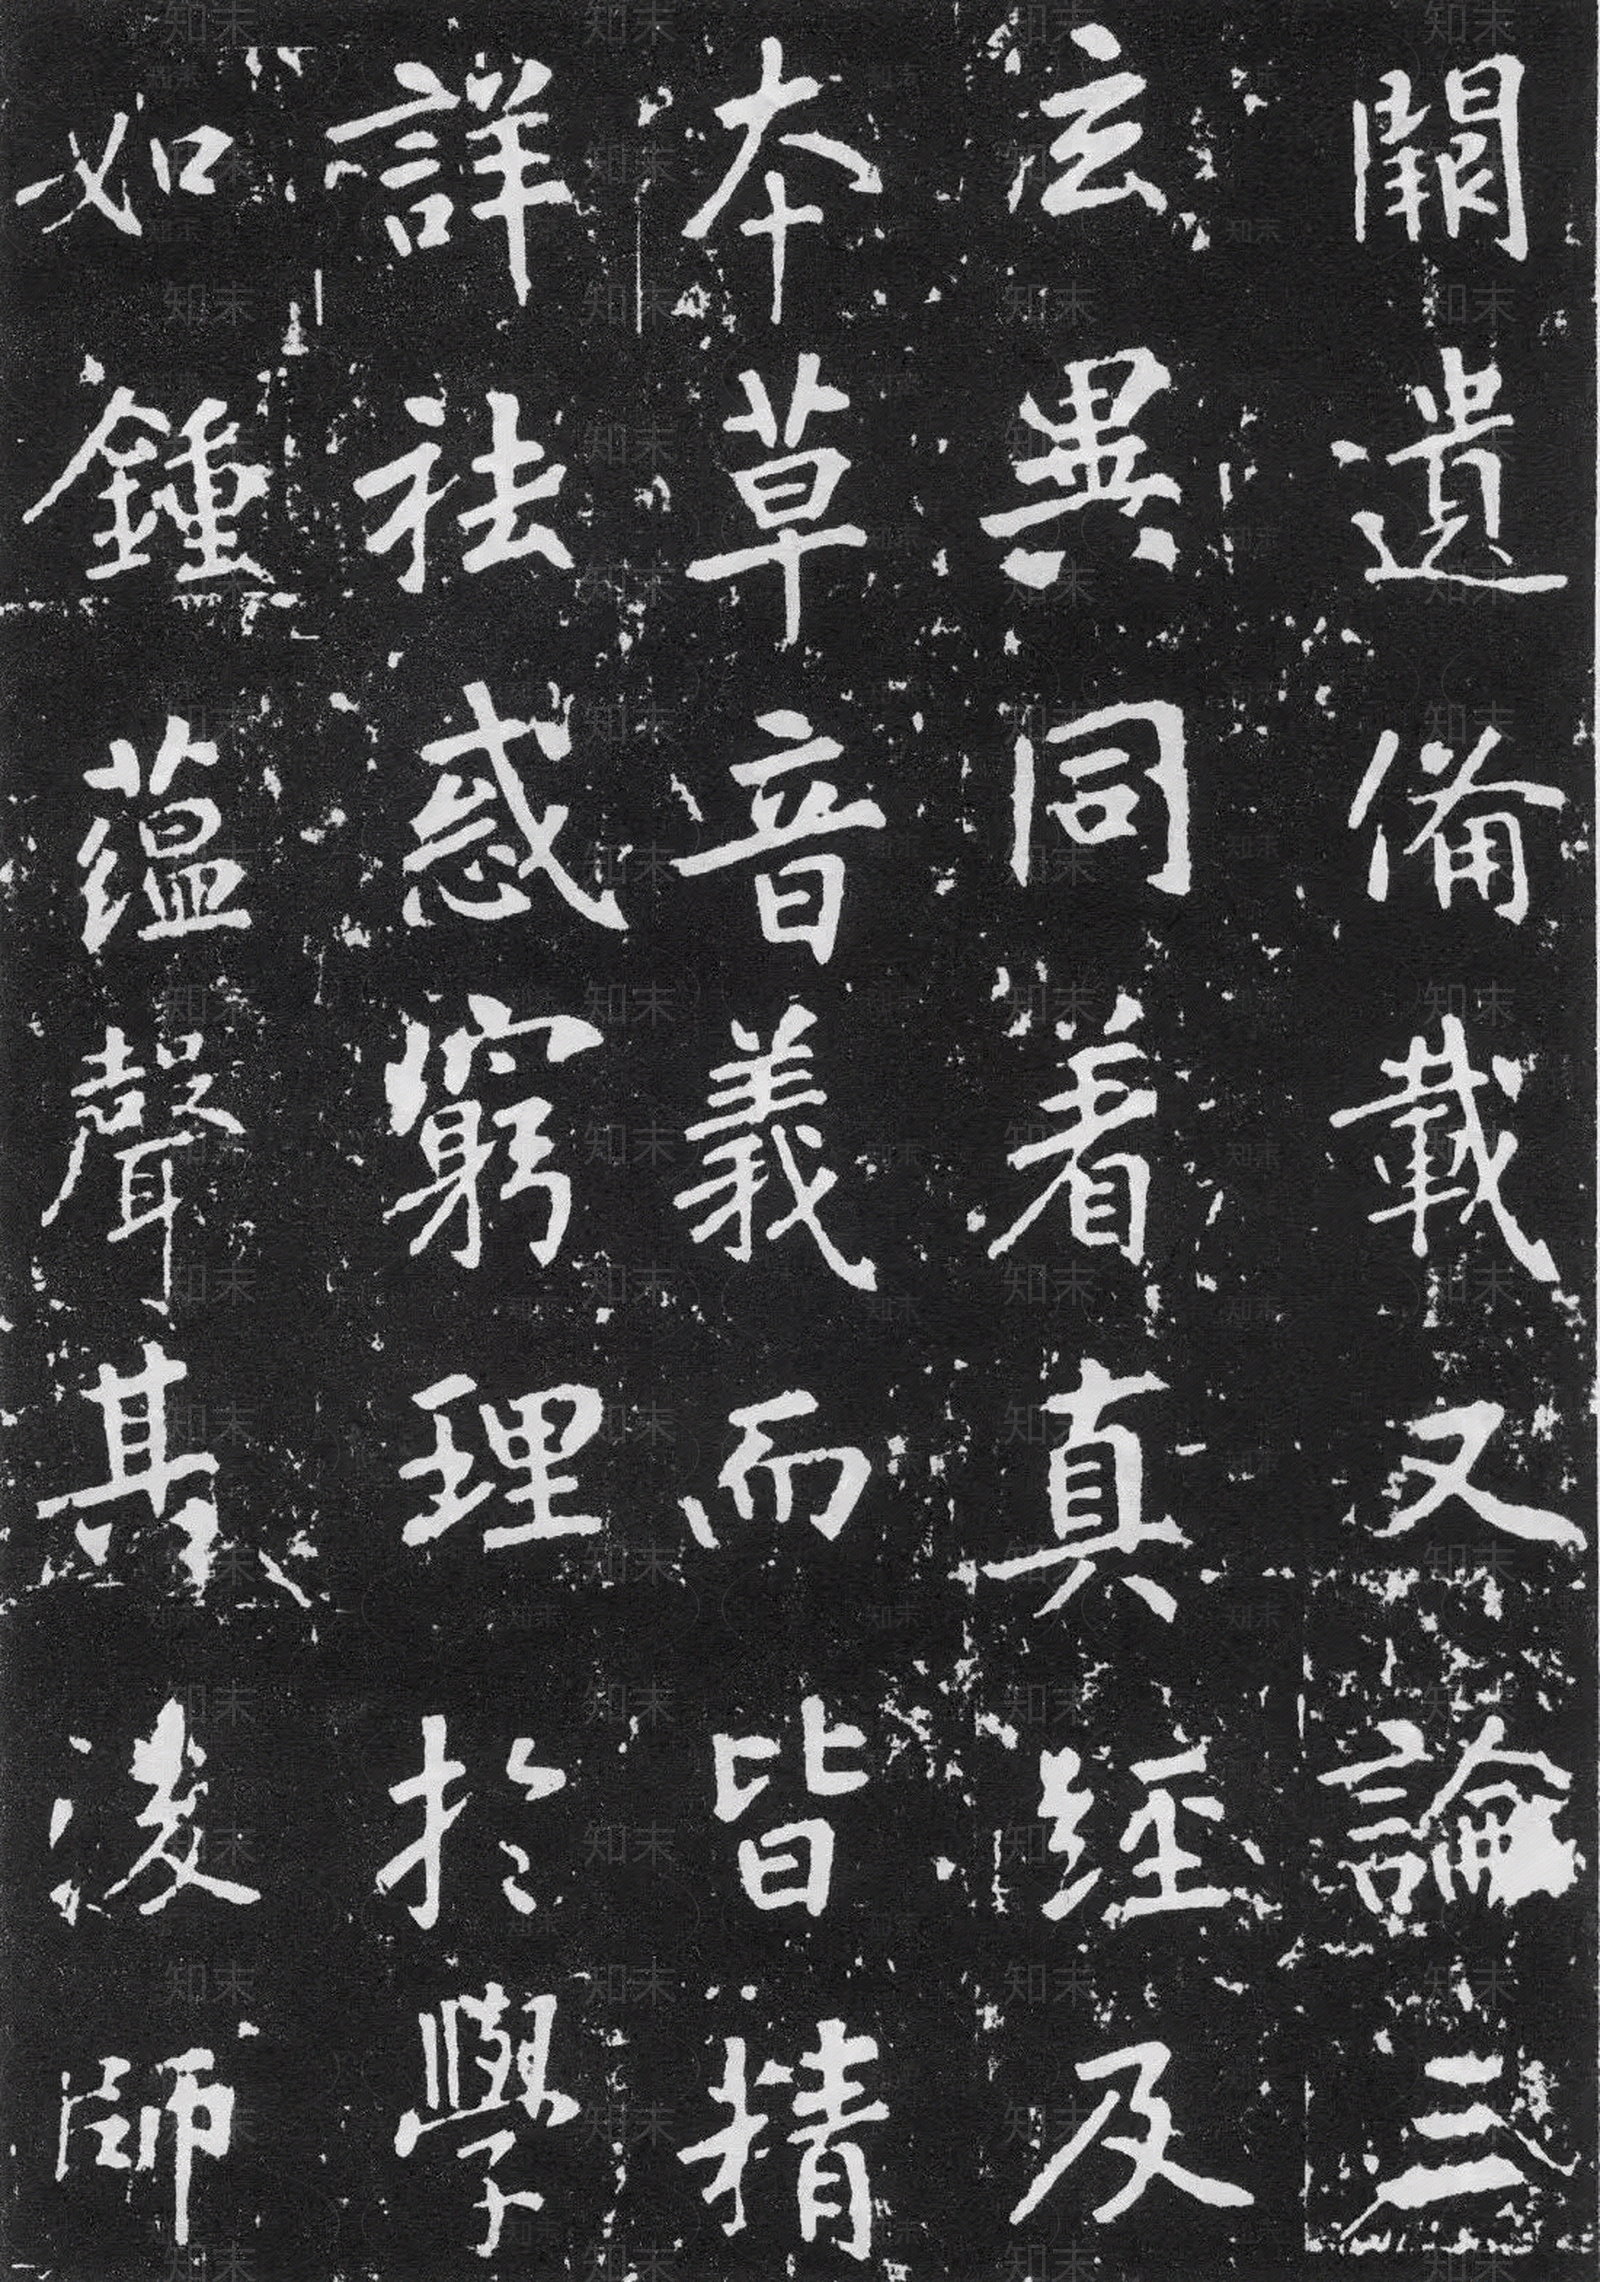 闕遺備載又論三
玄異同着真經及
本草音義而皆精
詳祛惑窮理於學
如鍾蘊聲其凌師
知末